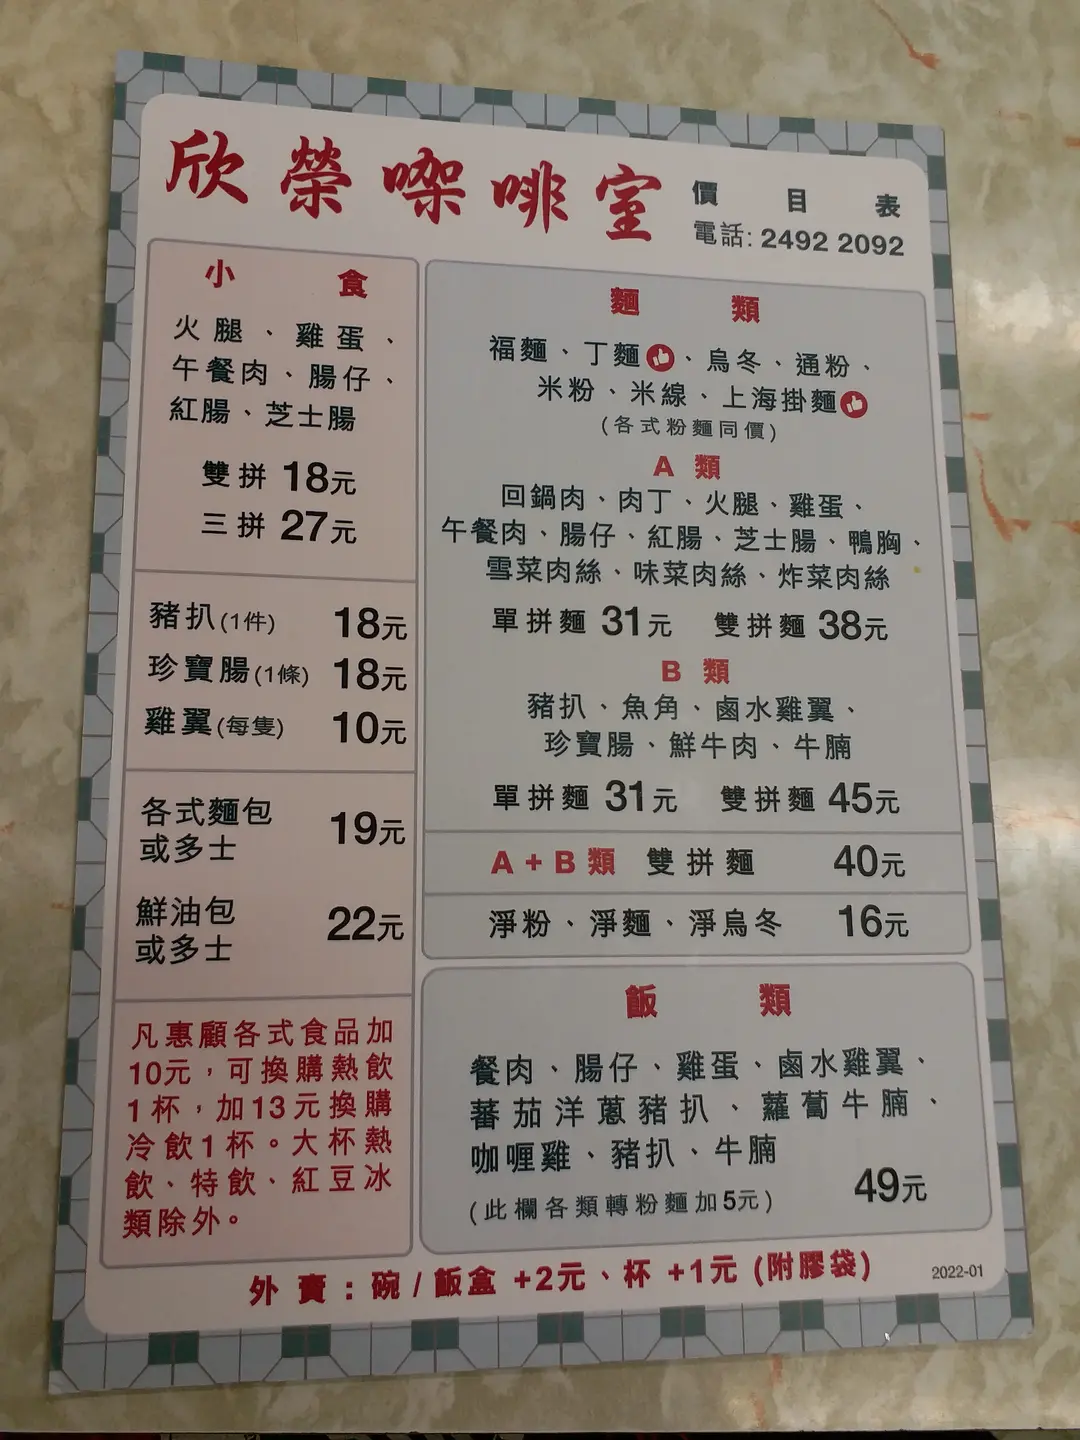 欣榮㗎啡室
價目表
電話: 2492 2092
小食
火腿、雞蛋、
午餐肉、腸仔、
紅腸、芝士腸
雙拼 18元
三拼 27元
豬扒(1件) 18元
珍寶腸(1條) 18元
雞翼(每隻) 10元
各式麵包
或多士 19元
鮮油包
或多士 22元
凡惠顧各式食品加
10元，可換購熱飲
1杯，加13元換購
冷飲1杯。大杯熱
飲、特飲、紅豆冰
類除外。
麵類
福麵、丁麵、烏冬、通粉、
米粉、米線、上海掛麵
(各式粉麵同價)
A類
回鍋肉、肉丁、火腿、雞蛋、
午餐肉、腸仔、紅腸、芝士腸、鴨胸、
雪菜肉絲、味菜肉絲、炸菜肉絲
單拼麵 31元 雙拼麵 38元
B類
豬扒、魚角、鹵水雞翼、
珍寶腸、鮮牛肉、牛腩
單拼麵 31元 雙拼麵 45元
A+B類 雙拼麵 40元
淨粉、淨麵、淨烏冬 16元
飯類
餐肉、腸仔、雞蛋、鹵水雞翼、
蕃茄洋蔥豬扒、蘿蔔牛腩、
咖喱雞、豬扒、牛腩
49元
(此欄各類轉粉麵加5元)
外賣：碗/飯盒 +2元、杯 +1元 (附膠袋)
2022-01